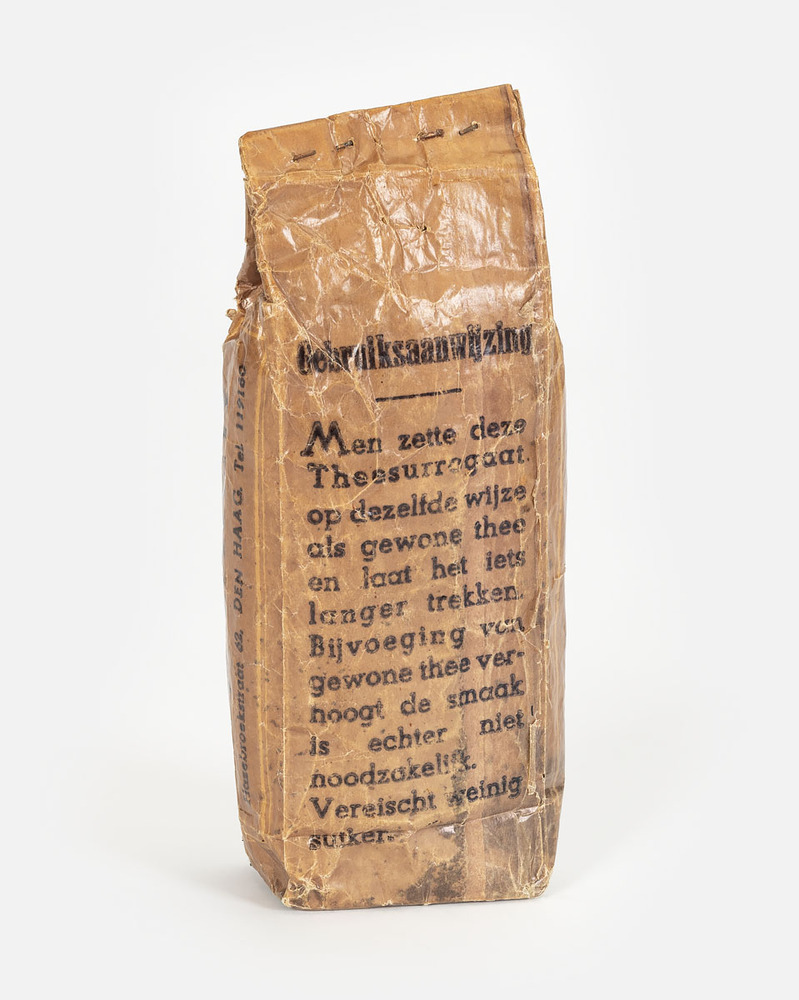 Gebruiksaanwijzing
Men zette deze
Theesurrogaat.
op dezelfde wijze
als gewone thee
en laat het iets
langer trekken.
Bijvoeging van
gewone thee ver-
hoogt de smaak
is echter niet
noodzakelijk.
Vereischt weinig
suiker.
62, DEN HAAG. Tel. 119160